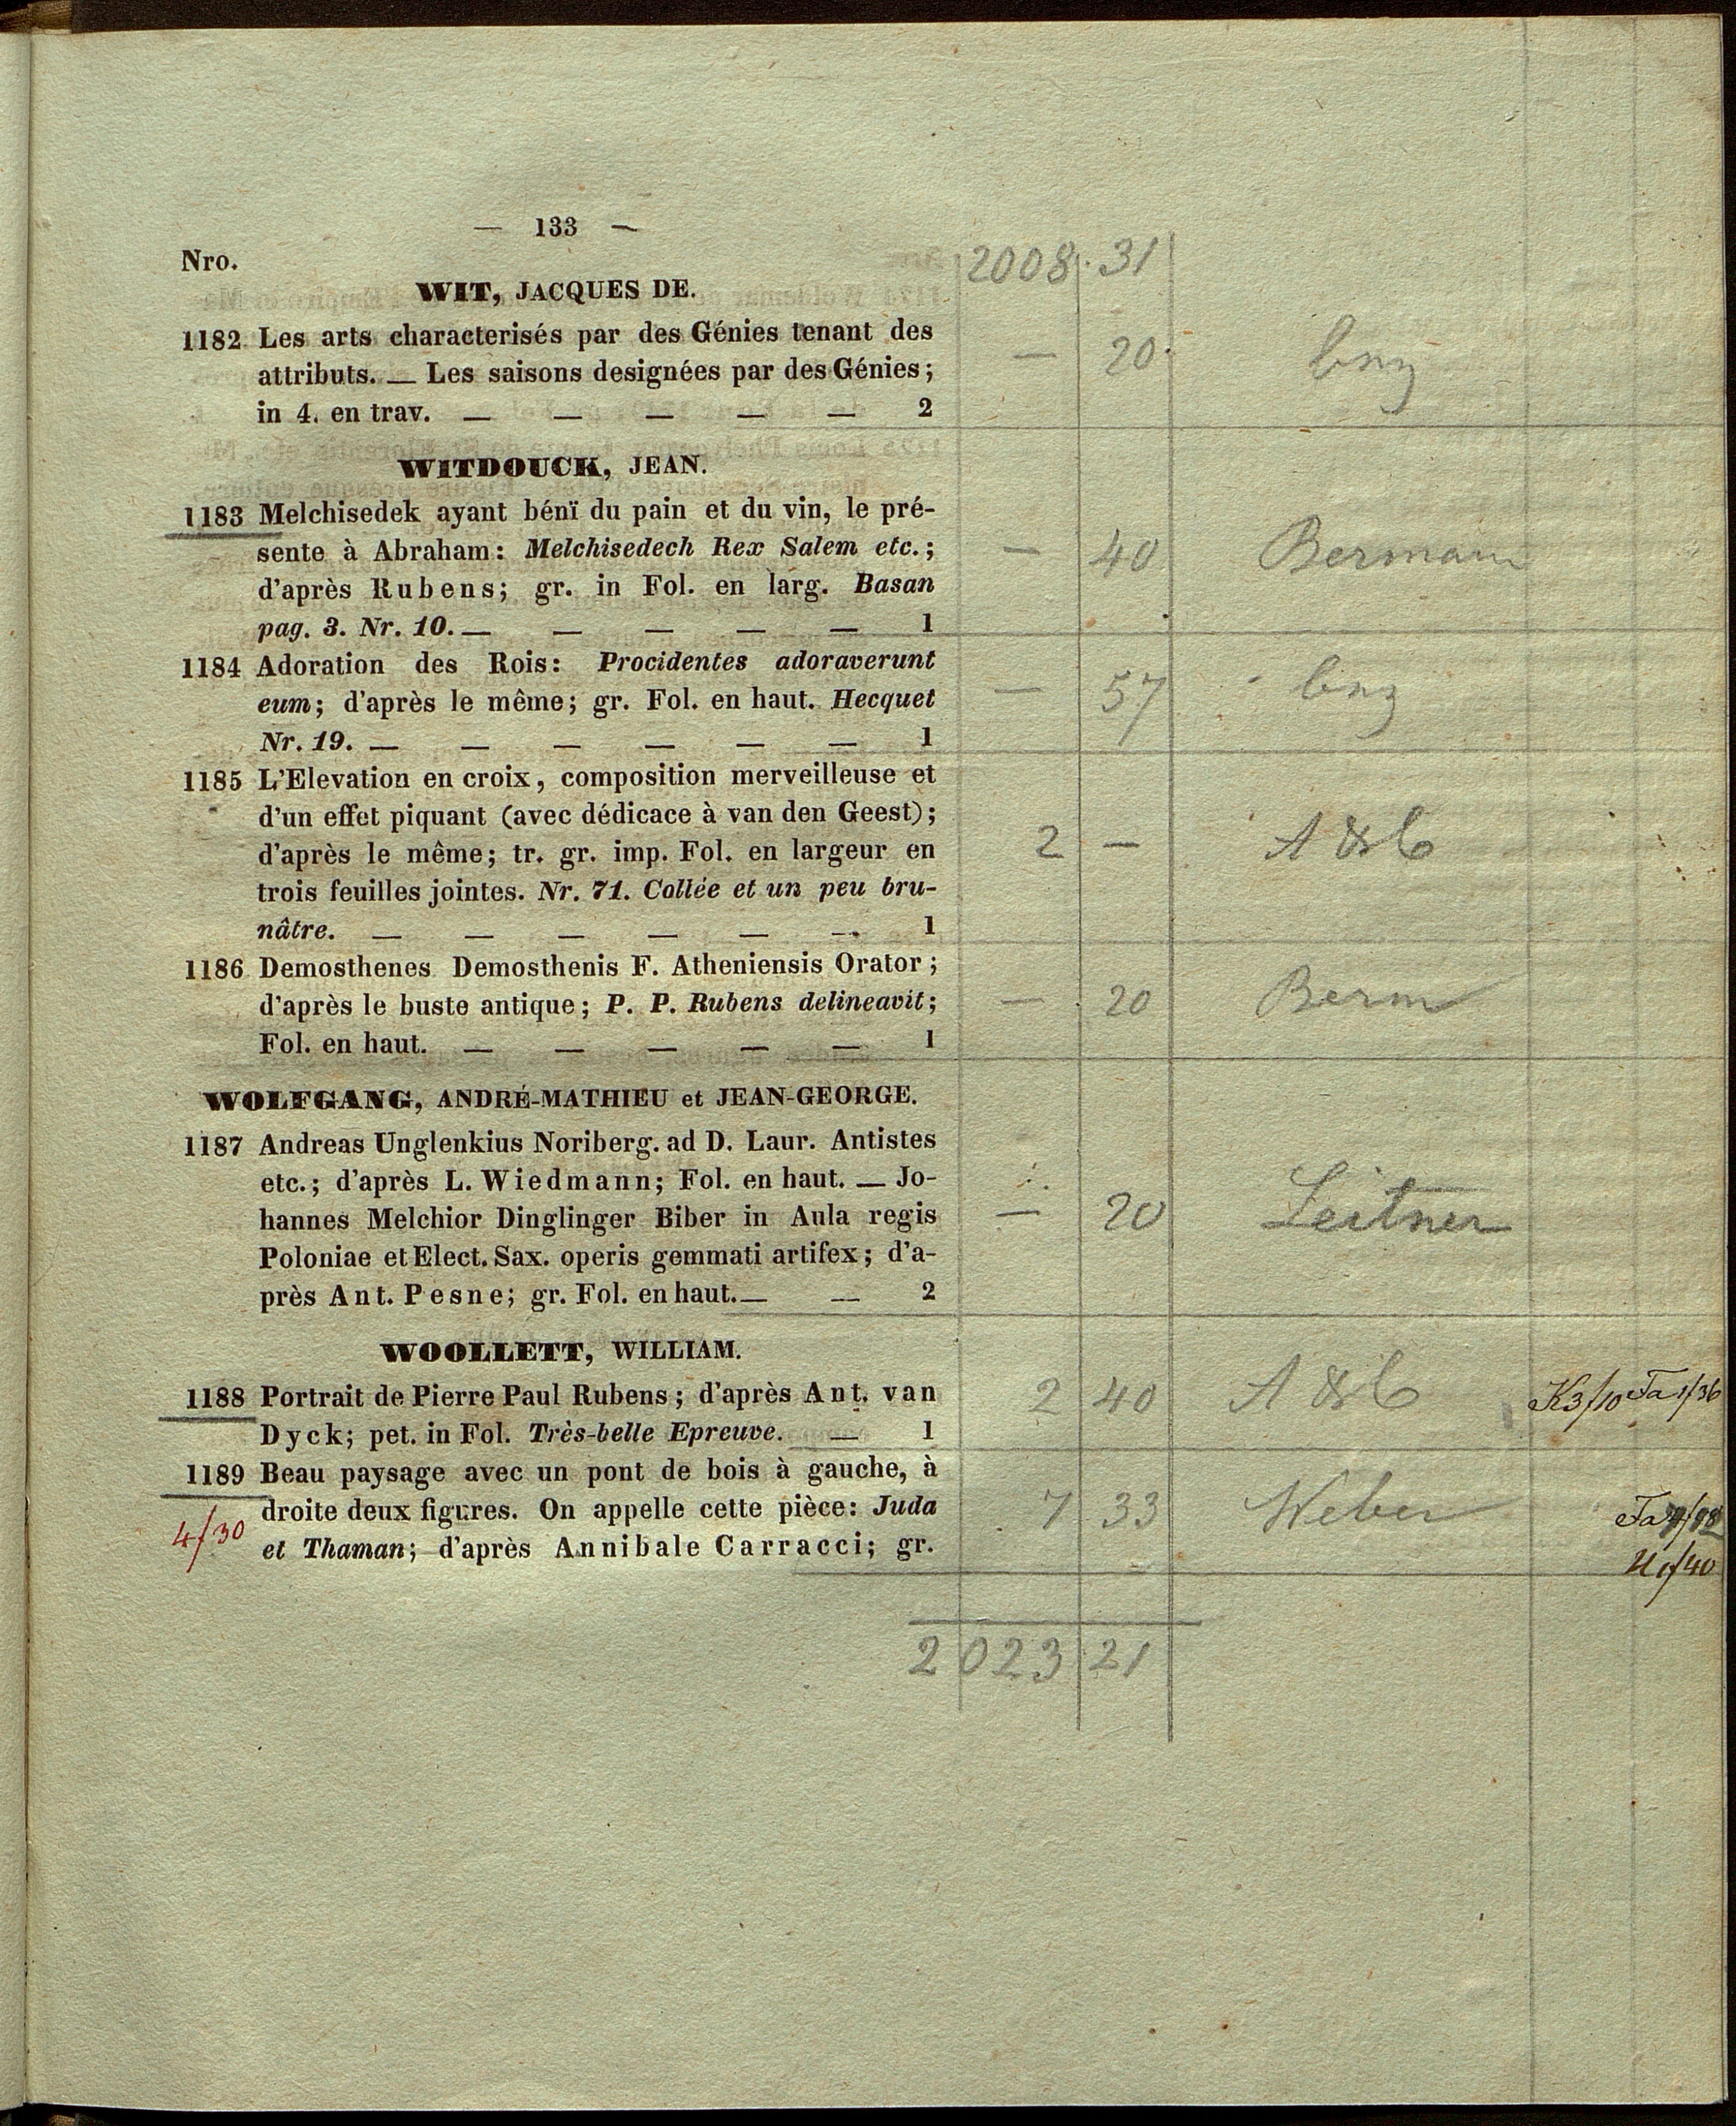 — 133 —
2008. 31
Nro.
WIT, JACQUES DE.
1182 Les arts characterisés par des Génies tenant des
attributs. — Les saisons designées par des Génies;
in 4. en trav. — — — — — 2
— 20
WITDOUCK, JEAN.
1183 Melchisedek ayant bénï du pain et du vin, le pré-
sente à Abraham: Melchisedech Rex Salem etc.;
d'après Rubens; gr. in Fol. en larg. Basan
pag. 3. Nr. 10. — — — — — 1
— 40 Bermann
1184 Adoration des Rois: Procidentes adoraverunt
eum; d'après le même; gr. Fol. en haut. Hecquet
Nr. 19. — — — — — — 1
— 57
1185 L'Elevation en croix, composition merveilleuse et
d'un effet piquant (avec dédicace à van den Geest);
d'après le même; tr. gr. imp. Fol. en largeur en
trois feuilles jointes. Nr. 71. Collée et un peu bru-
nâtre. — — — — — — 1
2 —
1186 Demosthenes Demosthenis F. Atheniensis Orator;
d'après le buste antique; P. P. Rubens delineavit;
Fol. en haut. — — — — — 1
— 20 Berm
WOLFGANG, ANDRÉ-MATHIEU et JEAN-GEORGE.
1187 Andreas Unglenkius Noriberg. ad D. Laur. Antistes
etc.; d'après L. Wiedmann; Fol. en haut. — Jo-
hannes Melchior Dinglinger Biber in Aula regis
Poloniae et Elect. Sax. operis gemmati artifex; d'a-
près Ant. Pesne; gr. Fol. en haut. — — 2
— 20 Leitner
WOOLLETT, WILLIAM.
1188 Portrait de Pierre Paul Rubens; d'après Ant. van
Dyck; pet. in Fol. Très-belle Epreuve. — 1
2 40 K3/10 Ta1/36
1189 Beau paysage avec un pont de bois à gauche, à
droite deux figures. On appelle cette pièce: Juda
et Thaman; d'après Annibale Carracci; gr.
4/30
7 33 Weber
2023 21